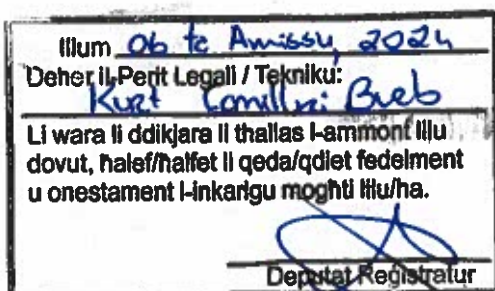 Illum 06 ta Awissu, 2024
Deher il-Perit Legali / Tekniku:
Kurt Camilleri Breb
Li wara li ddikjara li tħallas l-ammont lilu
dovut, ħalef/ħalfet li qeda/qdiet fedelment
u onestament l-inkarigu mogħti lilu/ha.
Deputat Reġistratur